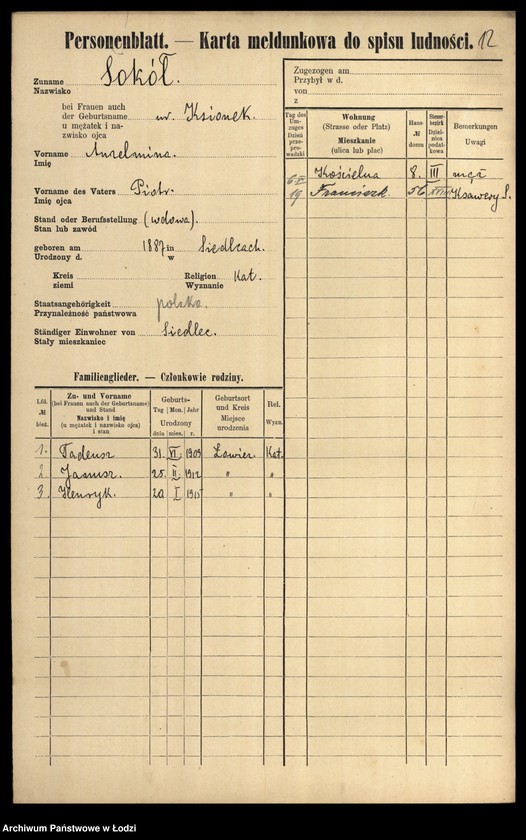 Personenblatt. — Karta meldunkowa do spisu ludności. 12
Zuname Sokół.
Nazwisko
bei Frauen auch
der Geburtsname ur. Ksionek.
u mężatek i na-
zwisko ojca
Vorname Anzelmina.
Imię
Vorname des Vaters Piotr.
Imię ojca
Stand oder Berufsstellung (wdowa).
Stan lub zawód
geboren am 1887 in Siedlcach.
Urodzony d. w
Kreis Religion Kat.
ziemi Wyznanie
Staatsangehörigkeit polska.
Przynależność państwowa
Ständiger Einwohner von Siedlec.
Stały mieszkaniec
Familienglieder. — Członkowie rodziny.
Lfd. № bież.
Zu- und Vorname
(bei Frauen auch der Geburtsname)
und Stand
Nazwisko i imię
(u mężatek i nazwisko ojca)
i stan
Geburts-
Tag Mon. Jahr
Urodzony
dnia mies. r.
Geburtsort
und Kreis
Miejsce
urodzenia
Rel.
Wyzn.
1. Tadeusz 31. VI 1909 Łowicz. Kat.
2. Janusz. 25. II 1912 " "
3. Henryk. 20 I 1915 " "
Zugezogen am
Przybył w d.
von
z
Tag des
Um-
zuges
Dzień
prze-
pro-
wadzki
Wohnung
(Strasse oder Platz)
Mieszkanie
(ulica lub plac)
Haus-
№
domu
Steuer-
bezirk
Dziel-
nica
podat-
kowa
Bemerkungen
Uwagi
Kościelna 8. III mąż
6/X 19 Franciszk. 56 XVIII Ksawery S.
Archiwum Państwowe w Łodzi